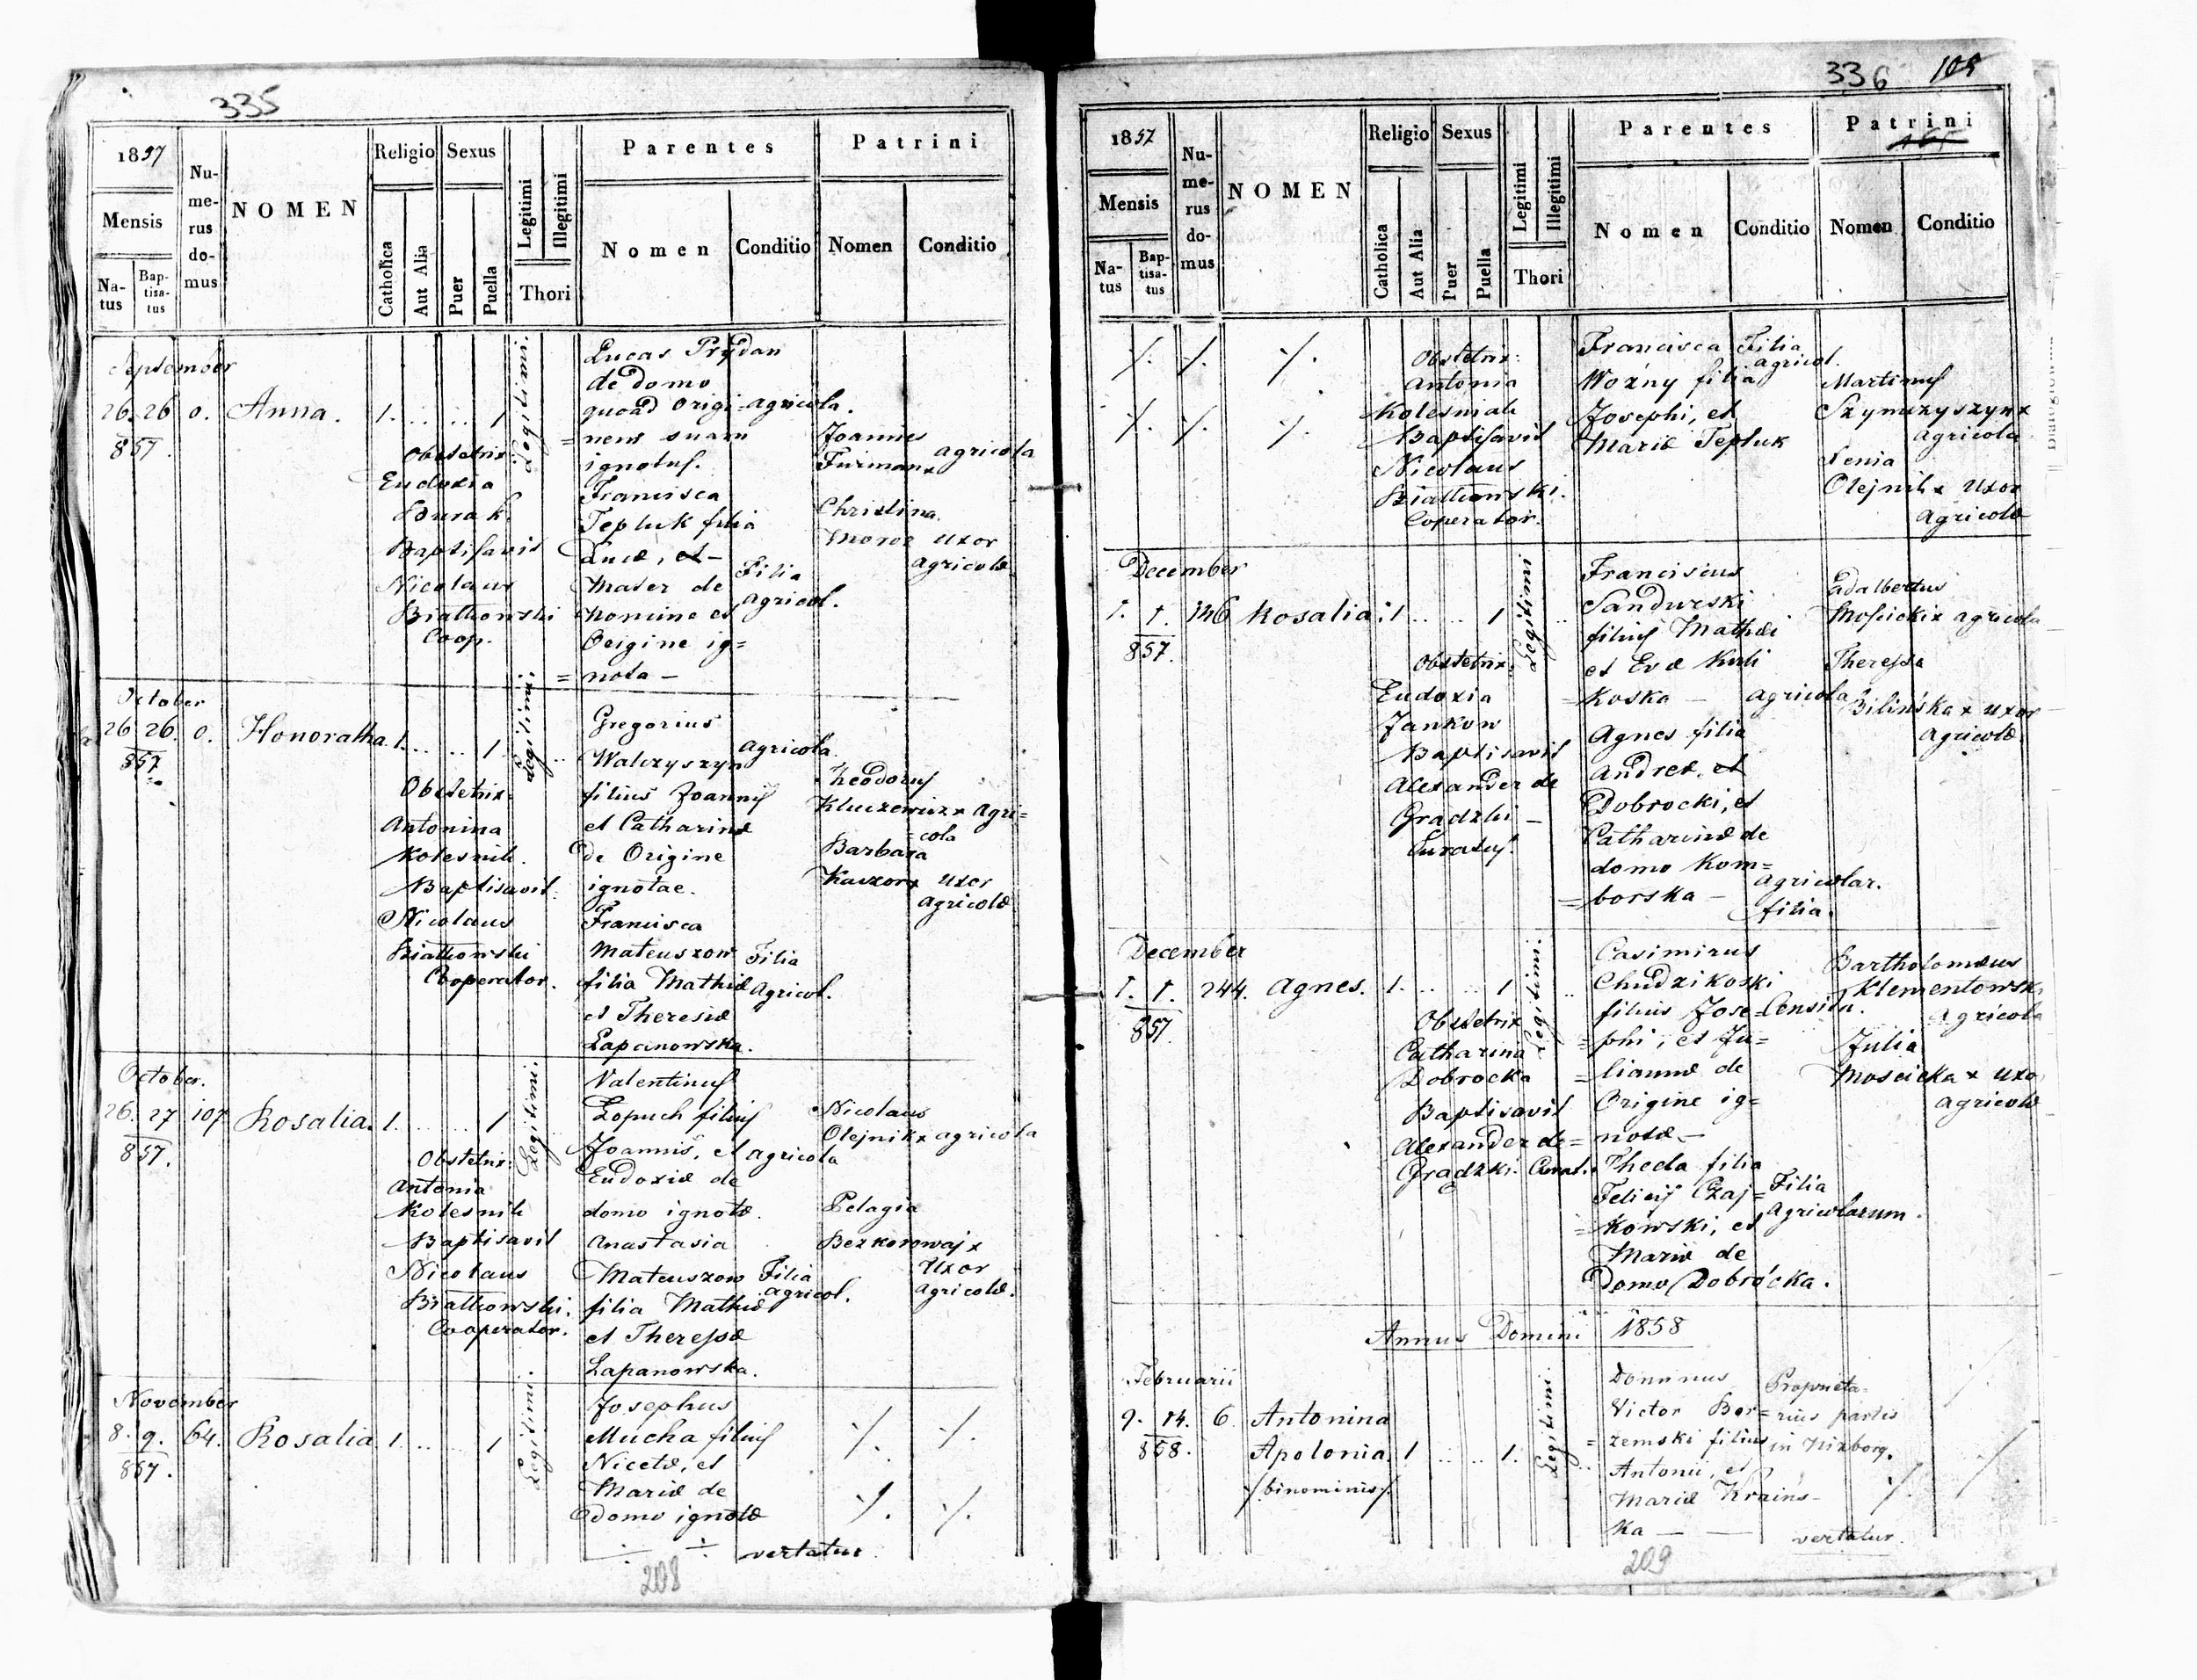 335
1857
Mensis
Natus
Baptisatus
Numerus domus
NOMEN
Religio
Catholica
Aut Alia
Sexus
Puer
Puella
Legitimi
Illegitimi
Thori
Parentes
Nomen
Conditio
Patrini
Nomen
Conditio
September
26. 26 0. Anna. 1. 1
857.
Legitimi
Obstetrix
Eudoxia
Burak.
Baptisavit
Nicolaus
Białkowski
Coop.
Lucas Prydan
de domo
quoad Origi=
=nem suam
ignotus.
Francisca
Tepluk filia
Lucæ, et
Mater de
Nomine et
Origine ig=
=nota —
agricola.
Filia
agricol.
Joannes
Furman x agricola
Christina
Moroz uxor
agricolæ
October
26 26. 0. Honoratha. 1. 1.
857
Legitimi
Obstetrix.
Antonina
Kolesnik.
Baptisavit
Nicolaus
Białkowski
Cooperator.
Gregorius
Walczyszyn
filius Joannis
et Catharinæ
de Origine
ignotae.
Francisca
Mateuszow
filia Mathiæ
et Theresiæ
Łapanowska.
agricola
Filia
Agricol.
Theodorus
Kluczewicz x Agri=
=cola
Barbara
Kaczor x Uxor
agricolæ
October.
26. 27 107. Rosalia. 1. 1
857.
Legitimi
Obstetrix:
Antonia
Kolesnik
Baptisavit
Nicolaus
Białkowski.
Cooperator.
Valentinus
Łopuch filius
Joannis, et
Eudoxiæ de
domo ignotæ.
Anastasia
Mateuszow
filia Mathiæ
et Theressæ
Łapanowska.
agricola
Filia
agricol.
Nicolaus
Olejnik x agricola
Pelagia
Bezkorowaj x
Uxor
agricolæ.
November
8. 9. 64. Rosalia 1. 1
857.
Legitimi.
Josephus
Mucha filius
Nicetæ, et
Mariæ de
domo ignotæ
vertatur
208
336 105
1857
Mensis
Natus
Baptisatus
Numerus domus
NOMEN
Religio
Catholica
Aut Alia
Sexus
Puer
Puella
Legitimi
Illegitimi
Thori
Parentes
Nomen
Conditio
Patrini
Nomen
Conditio
Obstetrix:
Antonia
Kolesniak
Baptisavit
Nicolaus
Białkowski.
Coperator.
Francisca
Woźny filia
Josephi, et
Mariæ Tepluk
Filia
agricol.
Martinus
Szymczyszyn x
agricola
Xenia
Olejnik x Uxor
Agricolæ
December
1. 1. 146 Rosalia. 1 1
857.
Legitimi
Obstetrix:
Eudoxia
Jankow
Baptisavit
Alexander de
Gradzki —
Curatus.
Franciscus
Sandurski
filius Mathæi
et Evæ Kuli
=koska —
Agnes filia
Andreæ, et
Dobrocki, et
Catharinæ de
domo Kom=
=borska —
agricola
agricolar.
filia.
Adalbertus
Mościcki x agricola
Theressa
Bilińska x uxor
agricolæ.
December
1. 1. 244. Agnes. 1. 1
857.
Legitimi.
Obstetrix
Catharina
Dobrocka
Baptisavit
Alexander de
Gradzki. Curat.
Casimirus
Chudzikoski
filius Jose=
=phi, et Ju=
=liannæ de
Origine ig=
=notæ —
Thecla filia
Felicis Czaj=
=kowski, et
Mariæ de
Domo Dobrócka.
Filia
Agricolarum.
Bartholomæus
Klementowski
agricola
Julia
Moscicka x uxo
agricolæ
Annus Domini 1858
Februarii
9. 14. 6. Antonina
858. Apolonia, 1 1.
/binominis/.
Legitimi.
Dominus
Victor Bor=
=zemski filius
Antonii, et
Mariæ Krains-
ka —
Proprieta=
rius partis
in Nizborg.
vertatur.
209